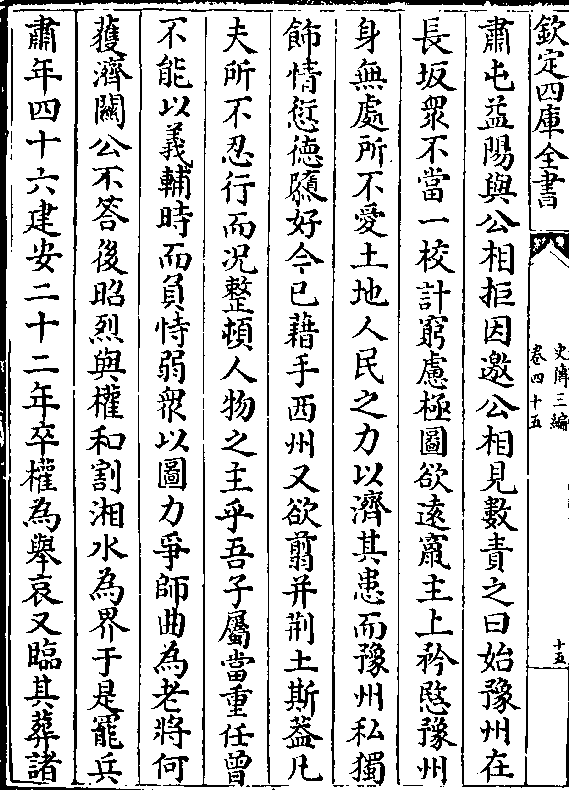 欽定四庫全書
史傳三編
卷四十五
十五
肅屯益陽與公相拒因邀公相見數責之曰始豫州在
長坂衆不當一校計窮慮極圖欲逺竄主上矜愍豫州
身無處所不愛土地人民之力以濟其患而豫州私獨
飾情愆德隳好今已藉手西州又欲翦并荆土斯葢凡
夫所不忍行而况整頓人物之主乎吾子屬當重任曾
不能以義輔時而負恃弱衆以圖力爭師曲為老將何
獲濟關公不答後昭烈與權和割湘水為界于是罷兵
肅年四十六建安二十二年卒權為舉哀又臨其葬諸